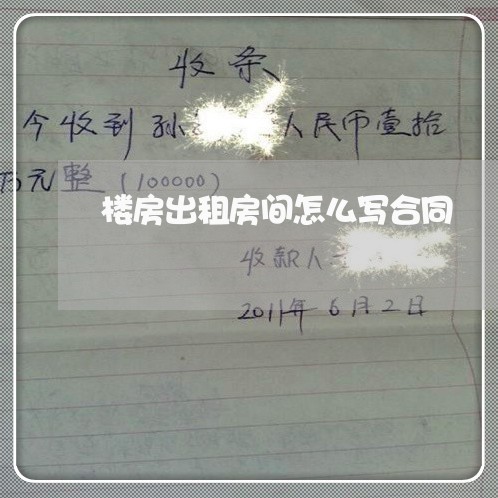 收条
今收到孙 人民币壹拾
万元整(100000)
楼房出租房间怎么写合同
收款人
2011年6月2日